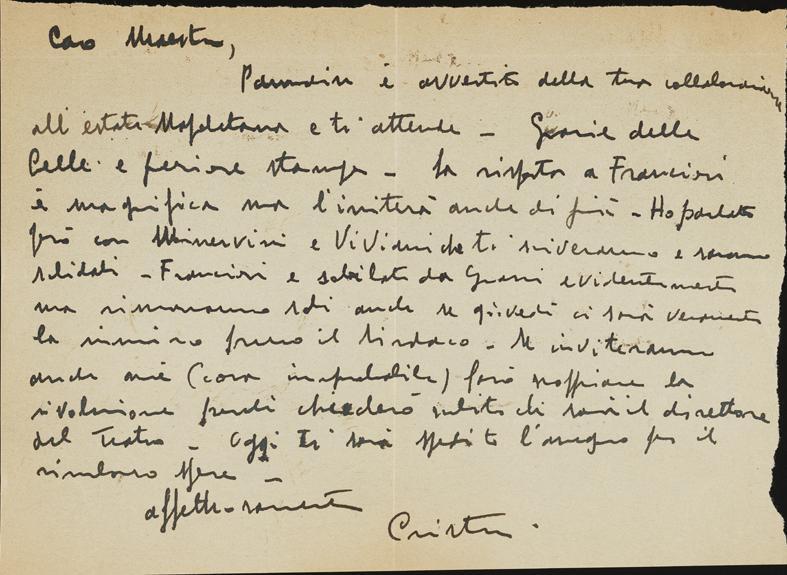 Caro Maestro,
Parodin è avvertito della tua collaborazione
all'estate Napoletana e ti attende - Grazie delle
belle e feriore stampe - La risposta a Francioni
è magnifica ma l'irriterà anche di più - Ho parlato
però con Minervini e Viviani che ti scriveranno e saranno
solidali - Francioni è sobillato da Grassi evidentemente
ma rimarranno soli anche se giovedì ci sarà veramente
la riunione presso il Sindaco - Se inviteranno
anche me (cosa improbabile) farò scoppiare la
rivoluzione perché chiederò subito chi sarà il direttore
del Teatro - Oggi ti sarà spedito l'assegno per il
rimborso spese -
affettuosamente